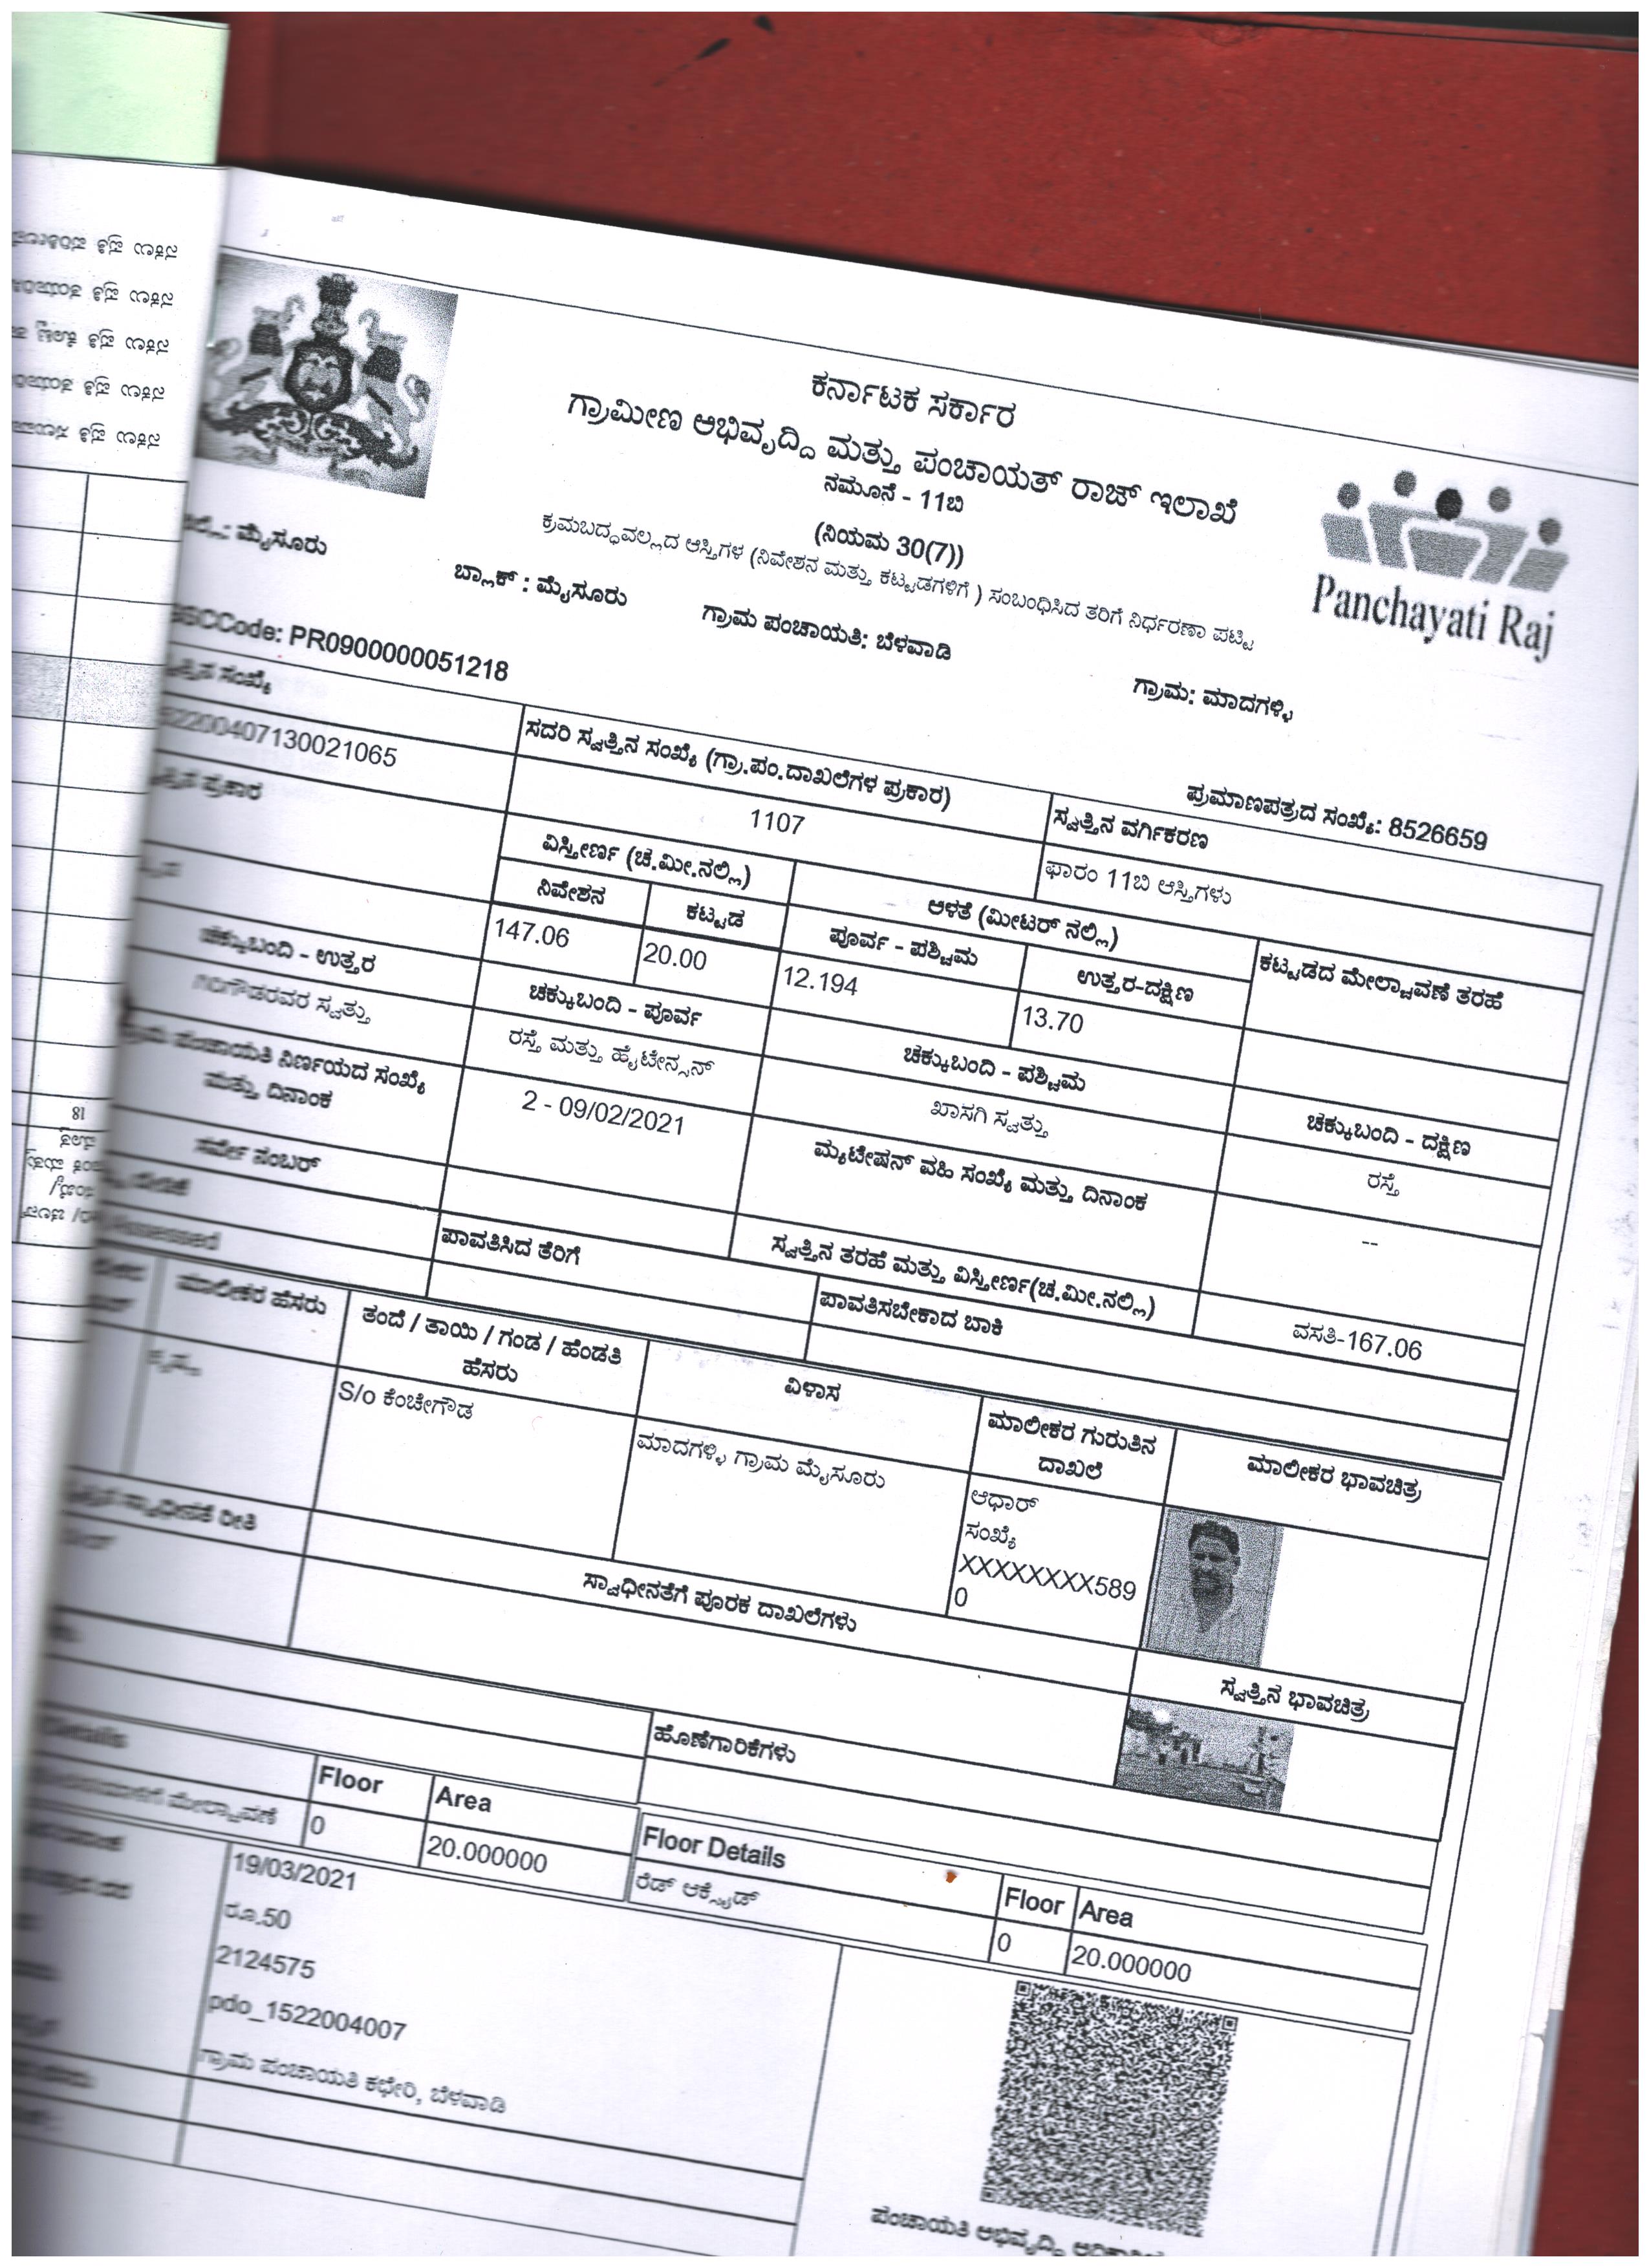 ಕರ್ನಾಟಕ ಸರ್ಕಾರ
ಗ್ರಾಮೀಣ ಅಭಿವೃದ್ದಿ ಮತ್ತು ಪಂಚಾಯತ್ ರಾಜ್ ಇಲಾಖೆ
ನಮೂನೆ - 11ಬಿ
(ನಿಯಮ 30(7))
ಕ್ರಮಬದ್ಧವಲ್ಲದ ಆಸ್ತಿಗಳ (ನಿವೇಶನ ಮತ್ತು ಕಟ್ಟಡಗಳಿಗೆ ) ಸಂಬಂಧಿಸಿದ ತರಿಗೆ ನಿರ್ಧರಣಾ ಪಟ್ಟಿ
Panchayati Raj
ಮೈಸೂರು
ಬ್ಲಾಕ್ : ಮೈಸೂರು
ಗ್ರಾಮ ಪಂಚಾಯತಿ: ಬೆಳವಾಡಿ
ಗ್ರಾಮ: ಮಾದಗಳ್ಳಿ
PR0900000051218
ಪ್ರಮಾಣಪತ್ರದ ಸಂಖ್ಯೆ: 8526659
ಸಂಖ್ಯೆ
ಸದರಿ ಸ್ವತ್ತಿನ ಸಂಖ್ಯೆ (ಗ್ರಾ.ಪಂ.ದಾಖಲೆಗಳ ಪ್ರಕಾರ)
ಸ್ವತ್ತಿನ ವರ್ಗಿಕರಣ
1107
ಫಾರಂ 11ಬಿ ಆಸ್ತಿಗಳು
ಪ್ರಕಾರ
ವಿಸ್ತೀರ್ಣ (ಚ.ಮೀ.ನಲ್ಲಿ)
ಅಳತೆ (ಮೀಟರ್ ನಲ್ಲಿ)
ಕಟ್ಟಡದ ಮೇಲ್ಚಾವಣೆ ತರಹೆ
ನಿವೇಶನ
ಕಟ್ಟಡ
ಪೂರ್ವ - ಪಶ್ಚಿಮ
ಉತ್ತರ-ದಕ್ಷಿಣ
147.06
20.00
12.194
13.70
ಚಕ್ಕುಬಂದಿ - ಉತ್ತರ
ಚಕ್ಕುಬಂದಿ - ಪೂರ್ವ
ಚಕ್ಕುಬಂದಿ - ಪಶ್ಚಿಮ
ಚಕ್ಕುಬಂದಿ - ದಕ್ಷಿಣ
ಸ್ವತ್ತು
ರಸ್ತೆ ಮತ್ತು ಹೈಟೇನ್ಸನ್
ಖಾಸಗಿ ಸ್ವತ್ತು
ರಸ್ತೆ
ಪಂಚಾಯತಿ ನಿರ್ಣಯದ ಸಂಖ್ಯೆ
ಮತ್ತು ದಿನಾಂಕ
2 - 09/02/2021
ಮ್ಯಟೇಷನ್ ವಹಿ ಸಂಖ್ಯೆ ಮತ್ತು ದಿನಾಂಕ
--
ಸರ್ವೇ ನಂಬರ್
ಸ್ವತ್ತಿನ ತರಹೆ ಮತ್ತು ವಿಸ್ತೀರ್ಣ(ಚ.ಮೀ.ನಲ್ಲಿ)
ವಸತಿ-167.06
ಪಾವತಿಸಿದ ತೆರಿಗೆ
ಪಾವತಿಸಬೇಕಾದ ಬಾಕಿ
ಮಾಲೀಕರ ಹೆಸರು
ತಂದೆ / ತಾಯಿ / ಗಂಡ / ಹೆಂಡತಿ
ಹೆಸರು
ವಿಳಾಸ
ಮಾಲೀಕರ ಗುರುತಿನ
ದಾಖಲೆ
ಮಾಲೀಕರ ಭಾವಚಿತ್ರ
S/o ಕೆಂಚೇಗೌಡ
ಮಾದಗಳ್ಳಿ ಗ್ರಾಮ ಮೈಸೂರು
ಆಧಾರ್
ಸಂಖ್ಯೆ
XXXXXXXX589
0
ಸ್ವಾಧೀನತೆ ರೀತಿ
ಸ್ವಾಧೀನತೆಗೆ ಪೂರಕ ದಾಖಲೆಗಳು
ಸ್ವತ್ತಿನ ಭಾವಚಿತ್ರ
ಹೊಣೆಗಾರಿಕೆಗಳು
Floor
Area
Floor Details
Floor
Area
ಮೇಲ್ಚಾವಣೆ
0
20.000000
ರೆಡ್ ಆಕ್ಸೈಡ್
0
20.000000
19/03/2021
ರೂ.50
2124575
pdo_1522004007
ಗ್ರಾಮ ಪಂಚಾಯತಿ ಕಛೇರಿ, ಬೆಳವಾಡಿ
ಪಂಚಾಯತಿ ಅಭಿವೃದ್ದಿ